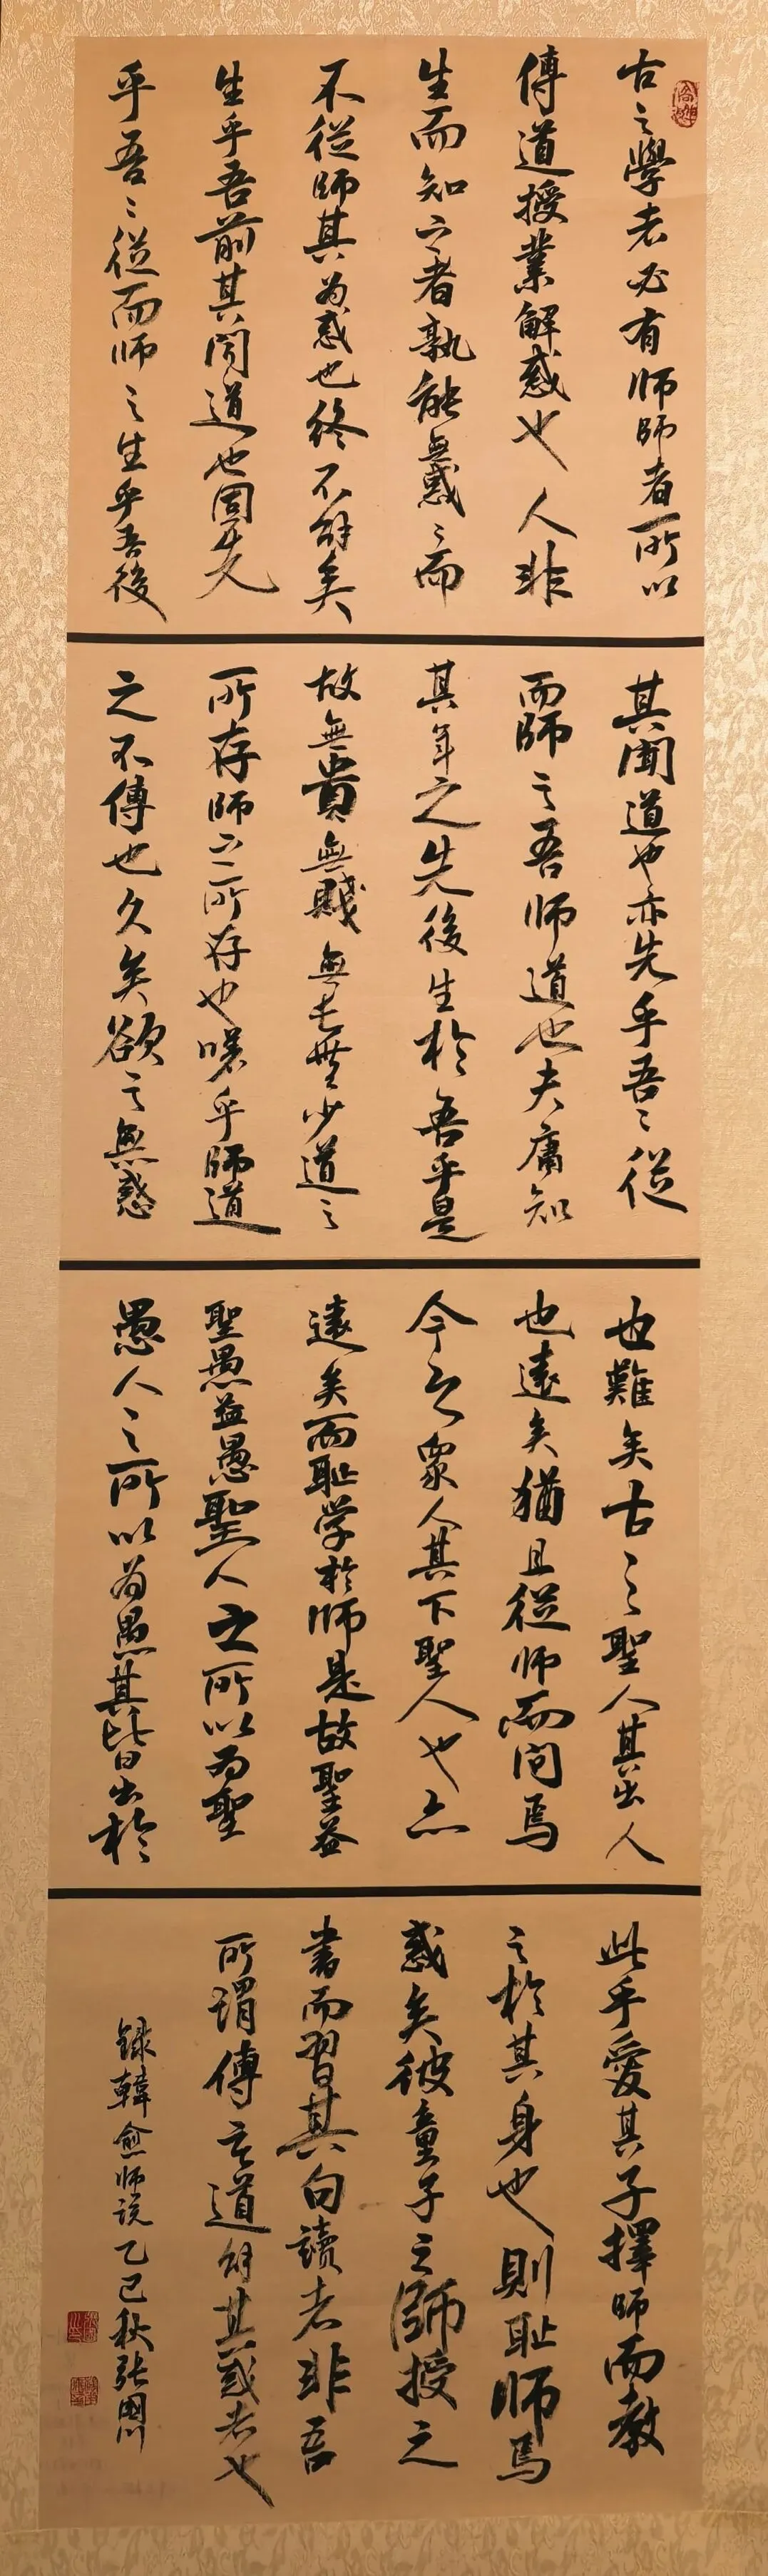 古之學者必有師師者所以
傳道授業解惑也人非
生而知之者孰能無惑〻而
不從師其為惑也終不解矣
生乎吾前其聞道也固先
乎吾〻從而師之生乎吾後
其聞道也亦先乎吾〻從
而師之吾師道也夫庸知
其年之先後生於吾乎是
故無貴無賤無長無少道之
所存師之所存也嗟乎師道
之不傳也久矣欲之無惑
也難矣古之聖人其出人
也遠矣猶且從師而問焉
今之眾人其下聖人也亦
遠矣而恥学於師是故聖益
聖愚益愚聖人之所以為聖
愚人之所以為愚其皆出於
此乎愛其子擇師而教
之於其身也則恥師焉
惑矣彼童子之師授之
書而習其句讀者非吾
所謂傳其道解其惑者也
録韓愈师说乙巳秋張國川